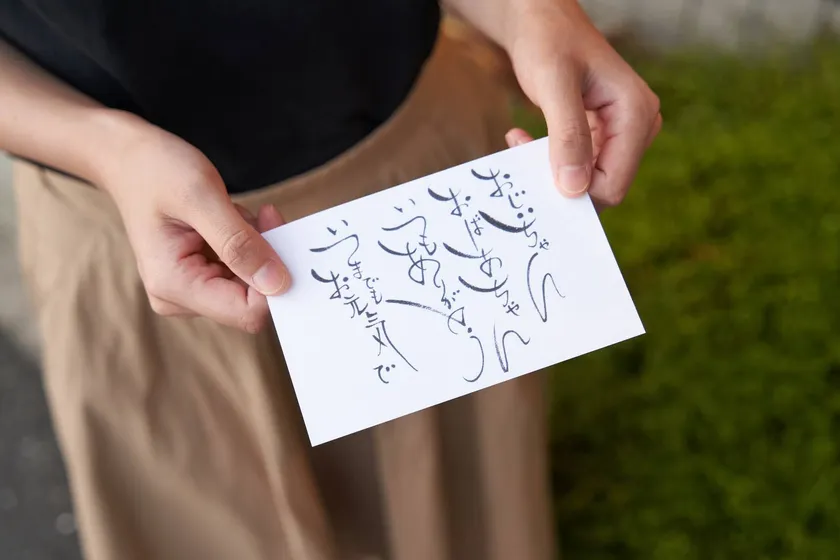 おじいちゃん
おばあちゃん
いつもありがとう
いつまでも
お元気で